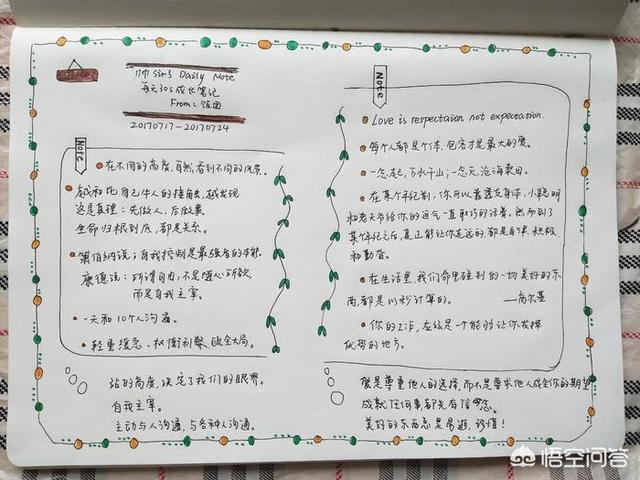 帅 sir's Daily Note
每天30s成长笔记
From: 饭团
20170717-20170724
Note
在不同的高度,自然,看到不同的风景。
越和比自己牛人的接触,越发现
这是真理:先做人,后做事
生命归根到底,都是关系。
萧伯纳说:自我控制是最强者的本能.
康德说:所谓自由,不是随心所欲,
而是自我主宰。
一天和10个人沟通。
轻重缓急、权衡利弊、顾全大局。
站的高度,决定了我们的眼界.
自我主宰.
主动与人沟通,与各种人沟通.
Note
Love is respectation not expectation.
每个人都是个体,包容才是最大的爱。
一念起,万水千山;一念灭,沧海桑田。
在某个年纪前,你可以靠透支身体,小聪明
和老天爷给你的运气一直取巧的活着,然而到了
某个年纪之后,真正能让你走远的,都是自律,积极
和勤奋。
在生活里,我们命里碰到的一切美好的东
西,都是以秒计算的。 —高尔基
你的工作,应该是一个能够让你发挥
优势的地方.
爱是尊重他人的选择,而不是要求他人成全你的期望
成就任何事都先有信念.
美好的东西总是易逝,珍惜!
悟空问答